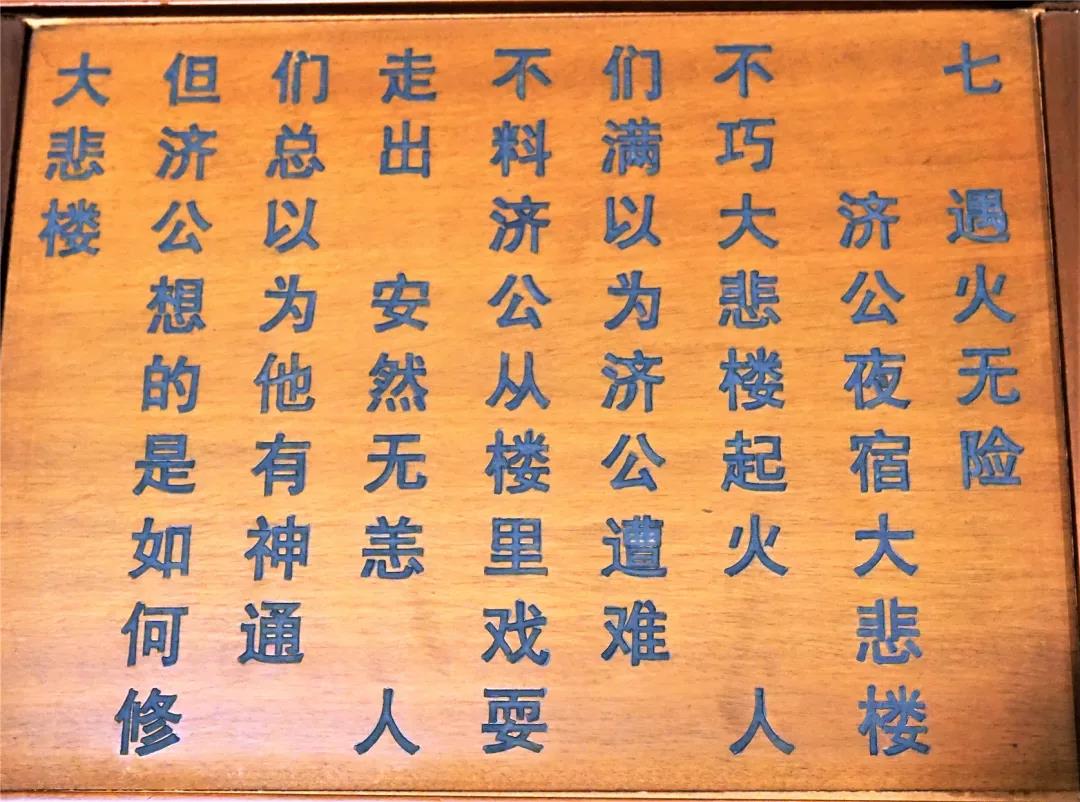 七 遇火无险
济公夜宿大悲楼
不巧大悲楼起火 人
们满以为济公遭难
不料济公从楼里戏耍
走出 安然无恙 人
们总以为他有神通
但济公想的是如何修
大悲楼